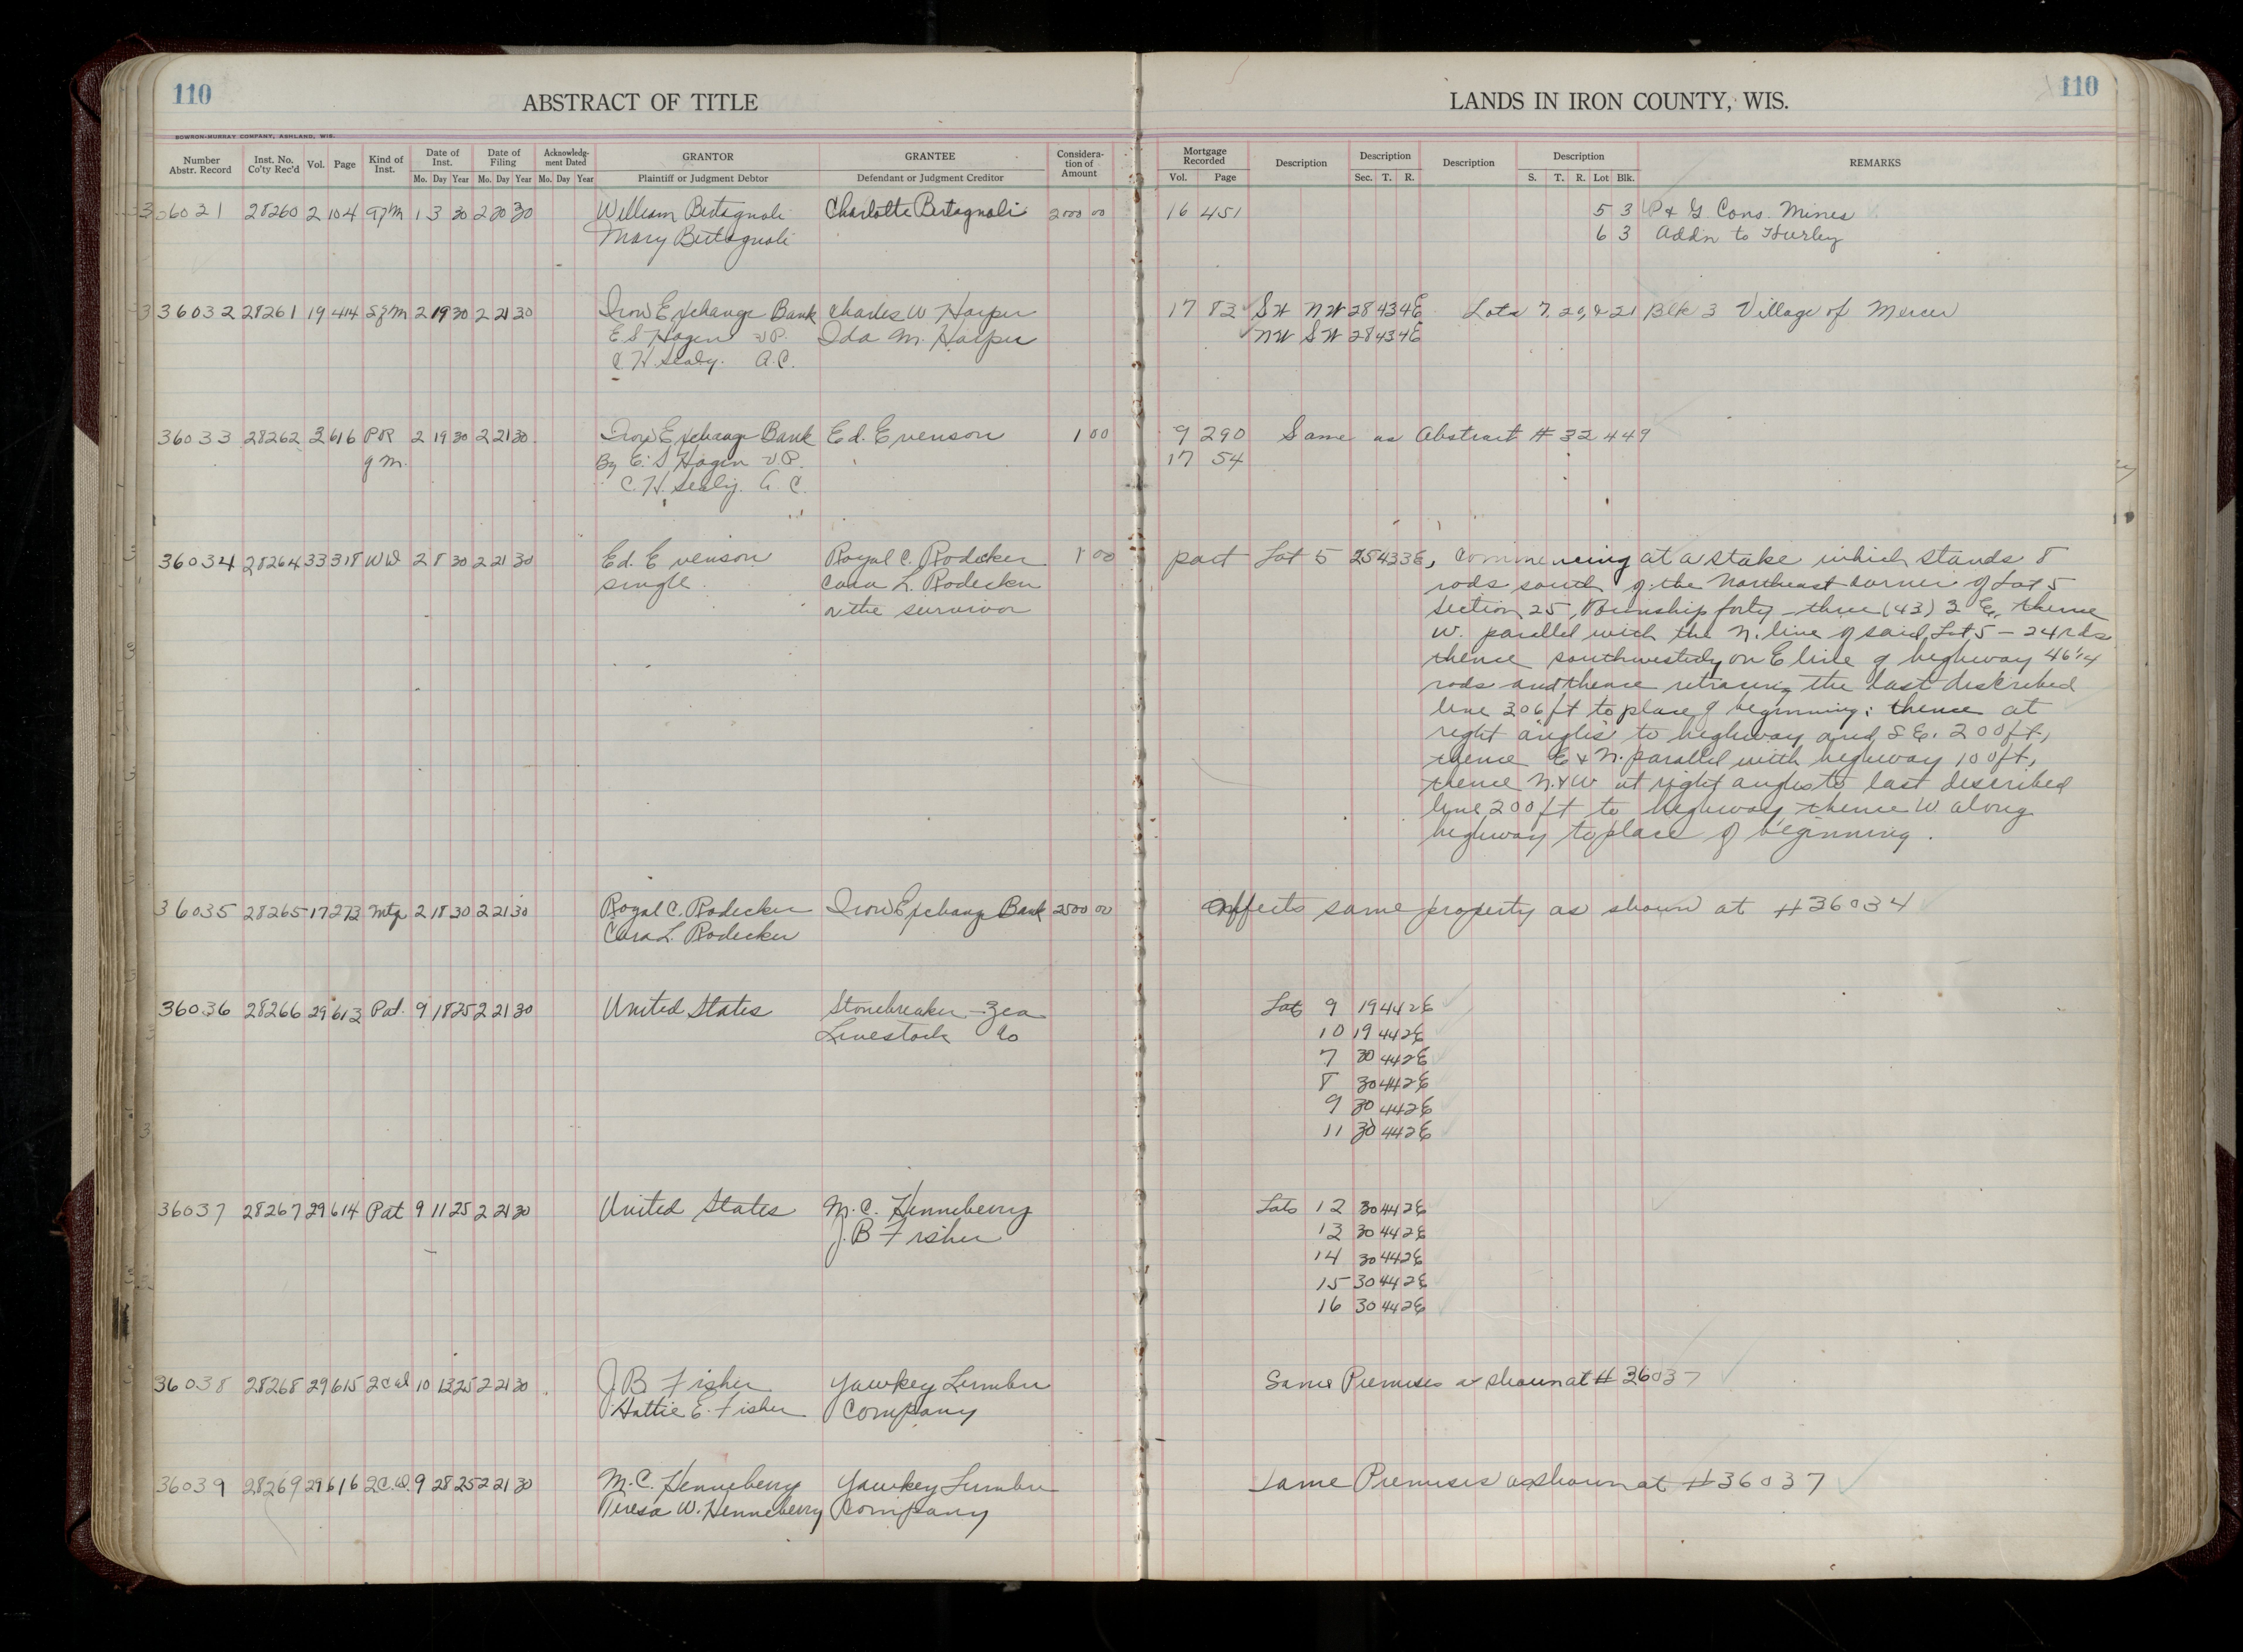 110
ABSTRACT OF TITLE
LANDS IN IRON COUNTY, WIS.
110
BOWRON-MURRAY COMPANY, ASHLAND, WIS.
Number Abstr. Record Inst. No. Co'ty Rec'd Vol. Page Kind of Inst. Date of Inst. Mo. Day Year Date of Filing Mo. Day Year Acknowledg-ment Dated Mo. Day Year GRANTOR Plaintiff or Judgment Debtor GRANTEE Defendant or Judgment Creditor Considera-tion of Amount Mortgage Recorded Vol. Page Description Description Sec. T. R. Description Description S. T. R. Lot Blk. REMARKS
36031 28260 2 104 1 3 30 2 20 30 William Bertagnoli Charlotte Bertagnoli 2000 00 16 451 5 3 P & G Cons. Mines
Mary Bertagnoli 6 3 Addn to Hurley
36032 28261 19 414 2 19 30 2 21 30 Iron Exchange Bank Charles W Harper 17 82 SW NW 28 43 4E Lots 7, 20, & 21 Blk 3 Village of Mercer
E S Hagen V P. Ida M. Harper NW SW 28 43 4E
C. H. Sealy. A.C.
36033 28262 3 616 PR 2 19 30 2 21 30 Iron Exchange Bank Ed. Evenson 1 00 9 290 Same as Abstract # 32449
g m. By E. S Hagen V P. 17 54
C. H. Sealy. A. C.
36034 28264 33 318 WD 2 8 30 2 21 30 Ed. Evenson Royal C. Rodecker 1 00 part Lot 5 25 43 3E, Commencing at a stake which stands 8
single. Cara L. Rodecker rods south of the Northeast corner of Lot 5
or the survivor Section 25, Township forty-three (43) 3 E, thence
W. parallel with the N. line of said Lot 5 - 24 rds
thence southwesterly on E line of highway 46 1/4
rods and thence retracing the last described
line 306 ft to place of beginning; thence at
right angles to highway and S E. 200 ft,
thence E & N. parallel with highway 100 ft,
thence N. & W at right angles to last described
line 200 ft to highway thence W along
highway to place of beginning.
36035 28265 17 273 Mtg 2 18 30 2 21 30 Royal C. Rodecker Iron Exchange Bank 2500 00 Affects same property as shown at # 36034
Cara L. Rodecker
36036 28266 29 613 Pat. 9 18 25 2 21 30 United States Stonebreaker-Zea Lots 9 19 44 2E
Livestock Co 10 19 44 2E
7 30 44 2E
8 30 44 2E
9 30 44 2E
11 30 44 2E
36037 28267 29 614 Pat 9 11 25 2 21 30 United States M. C. Henneberry Lots 12 30 44 2E
J. B Fisher 13 30 44 2E
14 30 44 2E
15 30 44 2E
16 30 44 2E
36038 28268 29 615 10 13 25 2 21 30 J. B Fisher Yawkey Lumber Same Premises as shown at # 36037
Hattie E. Fisher Company
36039 28269 29 616 2C.D. 9 28 25 2 21 30 M. C. Henneberry Yawkey Lumber Same Premises as shown at # 36037
Teresa W. Henneberry Company